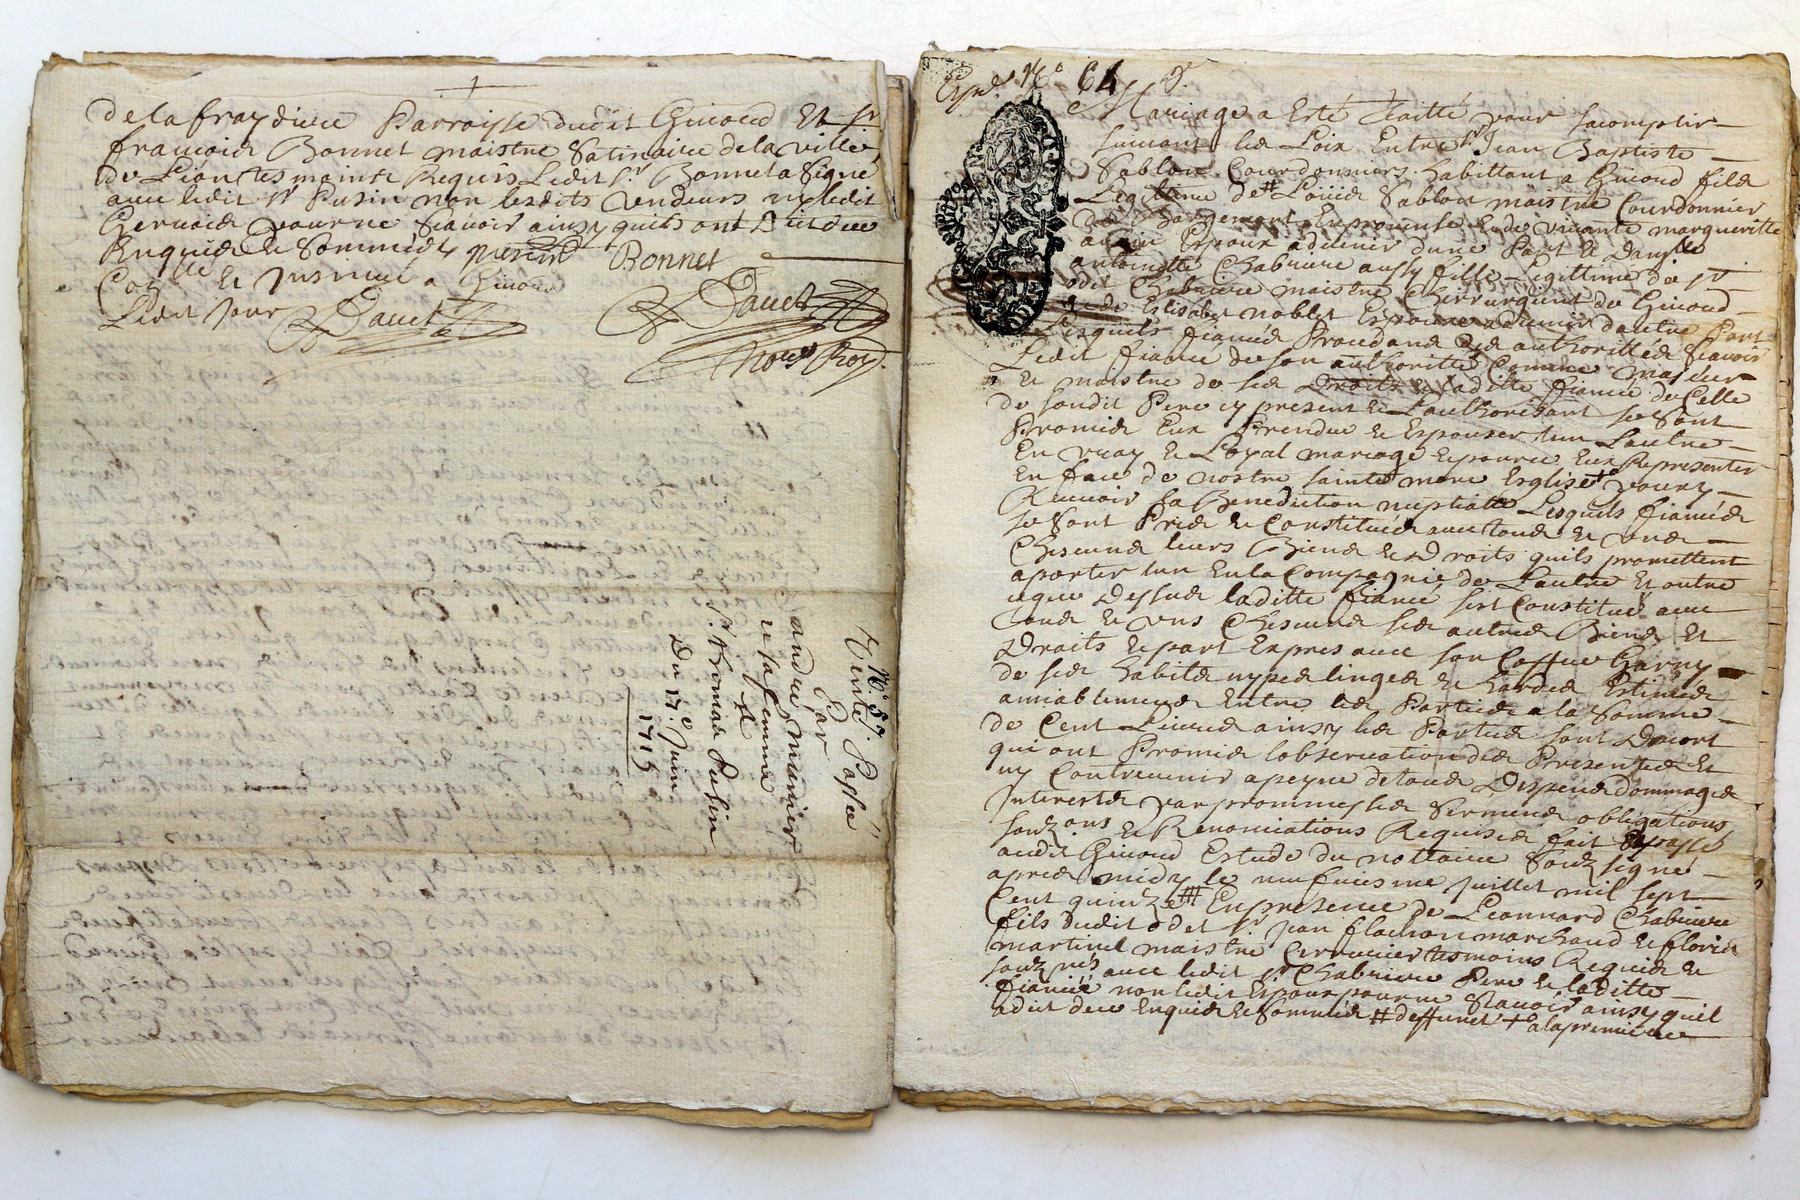 de la fraydiere Parroisse dudit Giuord Et sr
francois Bonnet maistre Satinaire de la ville
de Lion tesmoins Requis Ledit sr Bonnet a Signé
auec ledit sr Pusin non lesdits vendeurs ny ledit
Geruais pour ne Scauoir ainsy quils ont Dit de ce
Enquis Et Sommés
Bonnet
a Giuord
Ledit Jour Dauet
Dauet
Nore Roy.
No 57
Vente Passée
Par
andré
et sa femme
A
sr Thomas Pusin
Du 17e Juin
1715
Exped. No 64
Mariage a Esté Traitté pour sacomplir
suiuant les Loix Entre sr Jean Baptiste
Sablon Courdonniers habittant a Giuord fils
Legitime de # Loüis Sablon maistre Courdonnier
de En prouense Et de viuante margueritte
Espoux aduenir dune Part Et Danlle
antoinette Chabriere aussy fille Legittime de sr
odet Chabriere maistre Chirurgient de Giuord
Et de Elisabet noblet Espouse aduenir dautre Part
Lesquels fiancés Procedans Et authorittés Scauoir
Ledit fiance de son authoritté Comme majeur
Et maistre de ses Droits Et laditte fiancé de Celle
de sondit Pere cy present Et Lauthorisant se Sont
Promis Eux Prendre Et Espouser lun Lautre
En vray Et Loyal mariage Et pour ce Eux Representer
En face de nostre sainte mere Esglise pour y
Receuoir la Benediction nuptialle Lesquels fiancés
se sont Pris Et Constitués auec tous Et vns
Chiscuns leurs Biens Et Droits quils promettent
aporter lun En la Compagnie de Lautre Et outre
ce que Dessus laditte fiancé sest Constitué auec
tous Et vns Chiscuns ses autres Biens Et
Droits Et part Expres auec son Coffre Garny
de ses habits nypes linges Et hardes Estimés
amiablement Entre les Parties a la Somme
de Cent Liures ainsy les Parties sont Dacort
qui ont Promis lobseruation des Presentes Et
ny Contreuenir a peyne de tous Despens Dommages
Interests par prommesses Serments obligations
Renonciations Requises fait Et passé
audit Giuord Estude du nottaire Souzsigné
apres midy le neufuiesme Juillet mil sept
Cent quinze En presence de Leonnard Chabriere
fils dudit odet sr Jean flachon marchand Et floris
martinel maistre Cerrurier tesmoins Requis Et
souznés auec ledit sr Chabriere Pere Et laditte
fiancée non ledit Espoux pour ne Scauoir ainsy quil
a dit de ce Enquis Et Sommés # deffunct + a la premiere